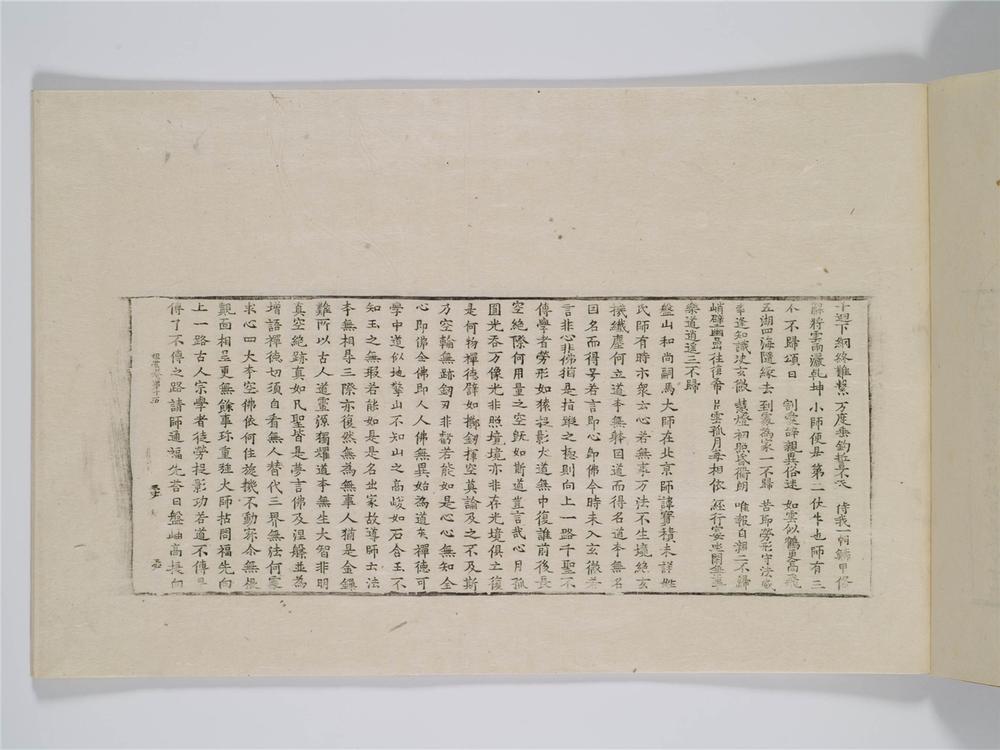 千迴下網終難繫 万度垂鈎誰 待我一朝鱗甲備
解將雲雨灑乾坤 小師便是第二伏牛也師有三
不歸頌曰 割愛辭親異俗迷 如雲似鶴更高飛
五湖四海隨緣去 到處為家一不歸 苦節勞形守法威
幸逢知識決玄微 慧燈初照昏衢朗 唯報自親二不歸
峭壁幽巖往復希 片雲孤月每相依 經行宴坐閑無事
樂道逍遥三不歸
盤山和尚嗣馬大師在北京師諱寶積未詳姓
氏師有時示衆云心若無事万法不生境絶玄
機纖塵何立道本無躰因道而得名道本無名
因名而得号若言即心即佛今時未入玄微若
言非心非佛猶是指蹤之極則向上一路千聖不
傳學者勞形如猿捉影大道無中復誰前後長
空絶際何用量之空既如斯道豈言哉心月孤
圓光吞万像光非照境境亦非存光境俱亡復
是何物禪徳譬如擲釼揮空莫論及之不及斯
乃空輪無跡釼刃非虧若能如是心心無知全
心即佛全佛即人人佛無異始為道矣禪徳可
學中道似地擎山不知山之高峻如石含玉不
知玉之無瑕若能如是是名出家故導師云法
本無相㝵三際亦復然無為無事人猶是金鏁
難所以古人道靈源獨耀道本無生大智非明
真空絶跡真如凡聖皆是夢言佛及涅槃並為
增語禪徳切須自看無人替代三界無法何處
求心四大本空佛依何住旋機不動寂尒無根
覿面相呈更無餘事珎重 大師拈問福先向
上一路古人宗學者徒勞捉影功若道不傳早
傳了不傳之路請師通福先荅曰盤岫高提向
祖堂集卷第十五